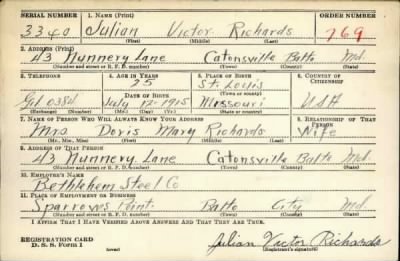 SERIAL NUMBER 1. NAME (Print) ORDER NUMBER
3340 Julian Victor Richards 769
(First) (Middle) (Last)
2. ADDRESS (Print)
43 Nunnery Lane Catonsville Balto Md.
(Number and street or R. F. D. number) (Town) (County) (State)
3. TELEPHONE 4. AGE IN YEARS 5. PLACE OF BIRTH 6. COUNTRY OF CITIZENSHIP
25 St. Louis
(Town or county)
DATE OF BIRTH
July 12-1915 Missouri USA
(Exchange) (Number) (Mo.) (Day) (Yr.) (State or country)
7. NAME OF PERSON WHO WILL ALWAYS KNOW YOUR ADDRESS 8. RELATIONSHIP OF THAT PERSON
Mrs Doris Mary Richards Wife
(Mr., Mrs., Miss) (First) (Middle) (Last)
9. ADDRESS OF THAT PERSON
43 Nunnery Lane Catonsville Balto Md.
(Number and street or R. F. D. number) (Town) (County) (State)
10. EMPLOYER'S NAME
Bethlehem Steel Co
11. PLACE OF EMPLOYMENT OR BUSINESS
Sparrows Point. Balto City Md.
(Number and street or R. F. D. number) (Town) (County) (State)
I AFFIRM THAT I HAVE VERIFIED ABOVE ANSWERS AND THAT THEY ARE TRUE.
REGISTRATION CARD
D. S. S. FORM 1 (over) Julian Victor Richards